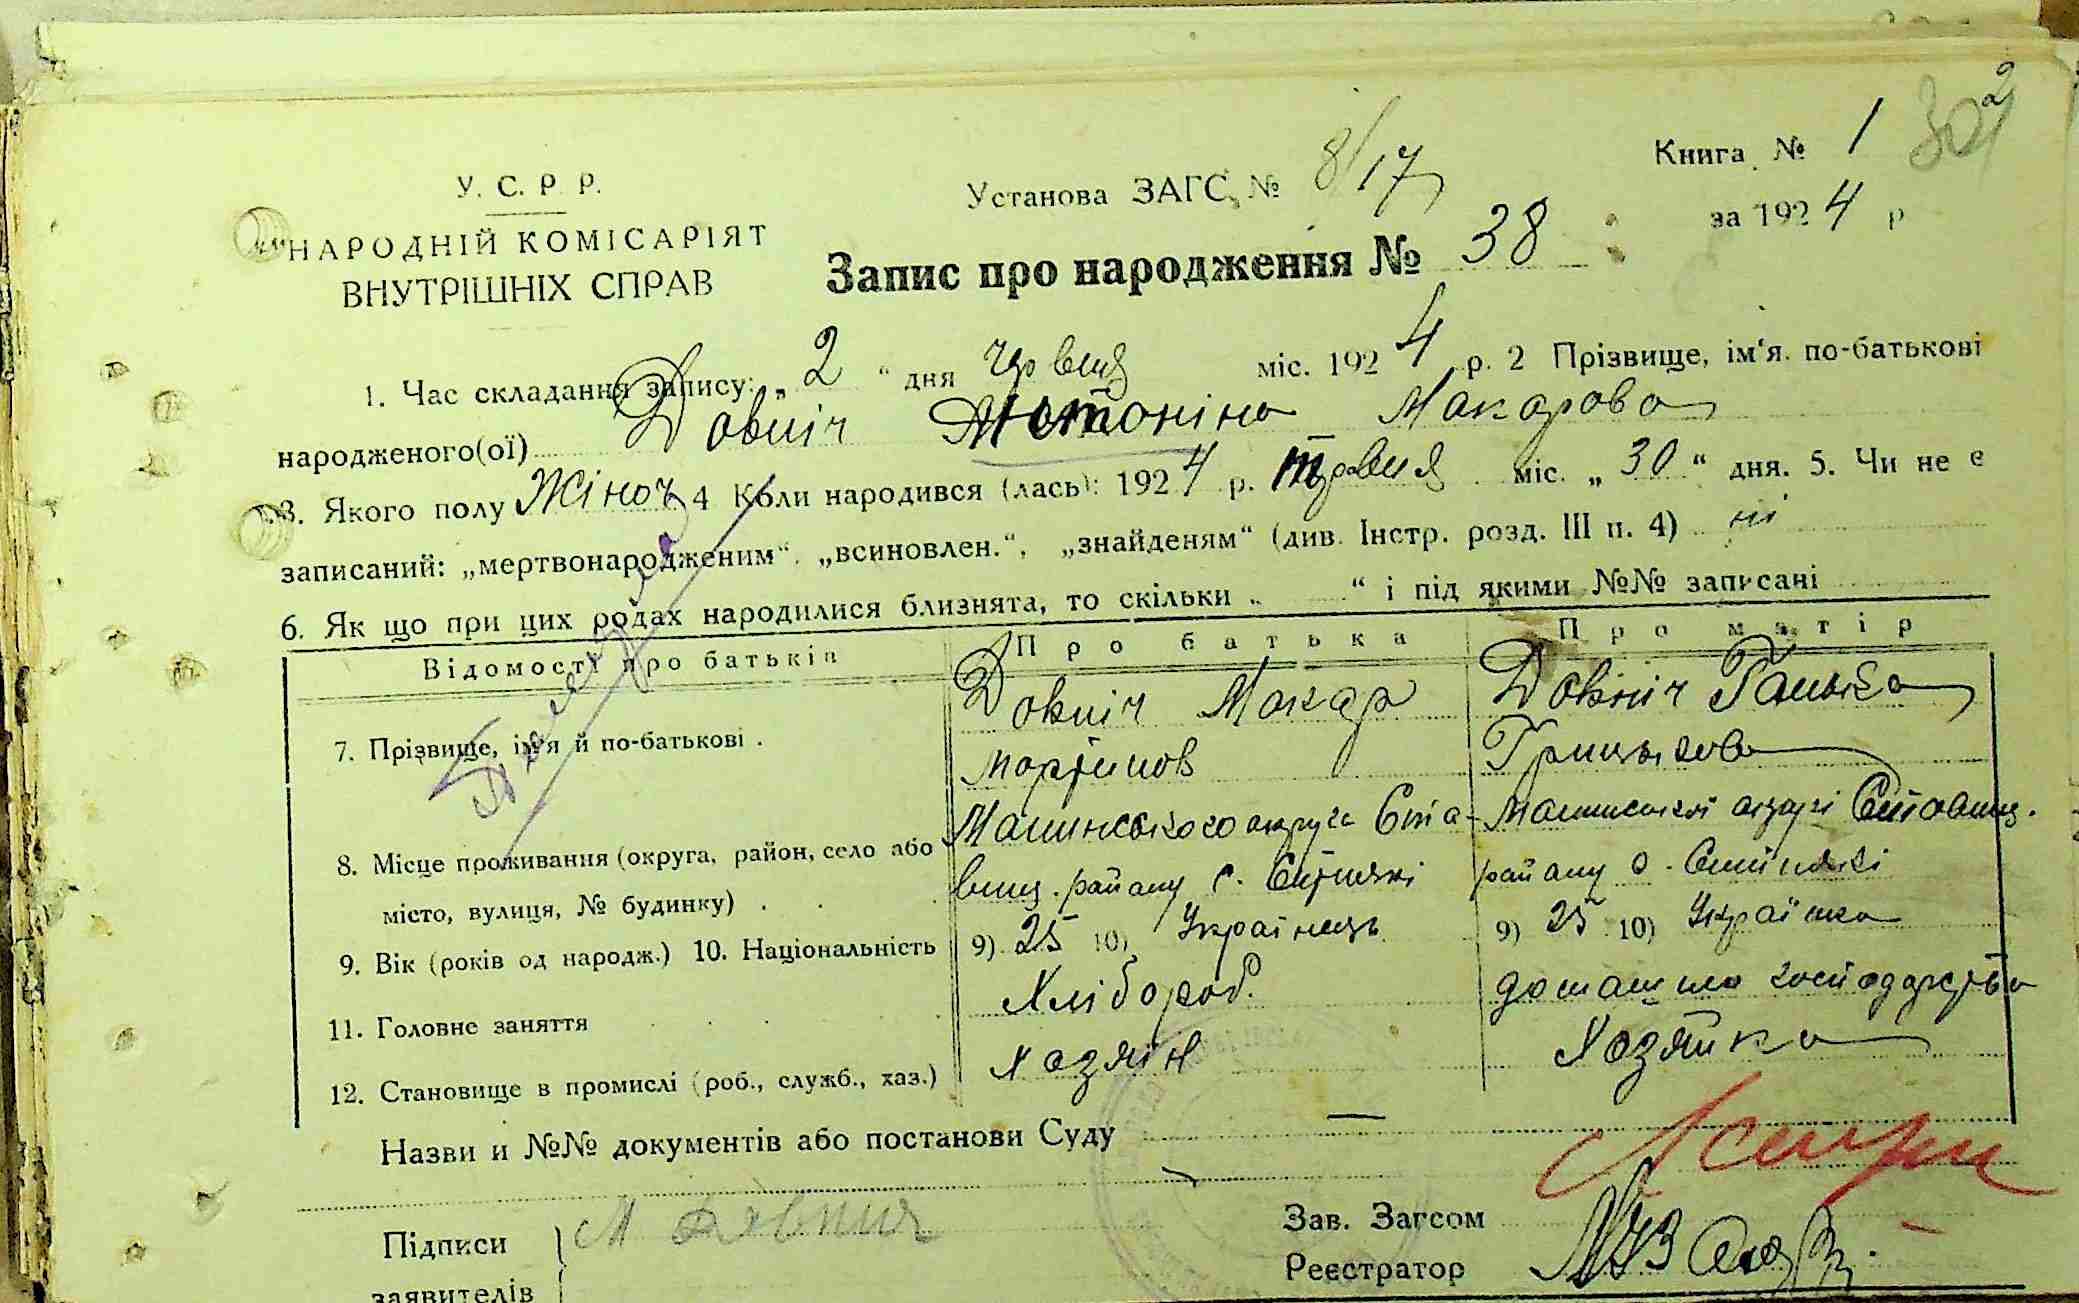 302
Книга № 1
У. С. Р. Р.
Установа ЗАГС № 8/17
за 1924 р
НАРОДНІЙ КОМІСАРІЯТ
ВНУТРІШНІХ СПРАВ
Запис про народження № 38
1. Час складання запису: „ 2 “ дня червня міс. 1924 р. 2 Прізвище, ім‘я. по-батькові
народженого(ої) Довпіч Антоніна Макарова
3. Якого полу Жіноч 4 Коли народився (лась): 1924 р. травня міс. „ 30 “ дня. 5. Чи не є
записаний: „мертвонародженим“. „всиновлен.“, „знайденям“ (див. Інстр. розд. III п. 4) ні
6. Як що при цих родах народилися близнята, то скільки „ “ і під якими №№ записані
Відомості про батьків Про батька Про матір
7. Прізвище, ім‘я й по-батькові . Довпіч Макар Довпіч Ганька
Мартинов Грицькова
8. Місце проживання (округа, район, село або Малинського округа Ста- Малинської округі Ставищ.
місто, вулиця, № будинку) . . . вищ. району с. району с.
9. Вік (років од народж.) 10. Національність 9) 25 10) Українець 9) 25 10) Українка
11. Головне заняття Хлібороб. домашнє господарство
12. Становище в промислі (роб., служб., хаз.) Хазяїн Хазяйка
Назви и №№ документів або постанови Суду —
Підписи М Довпич Зав. Загсом
заявителів Реєстратор